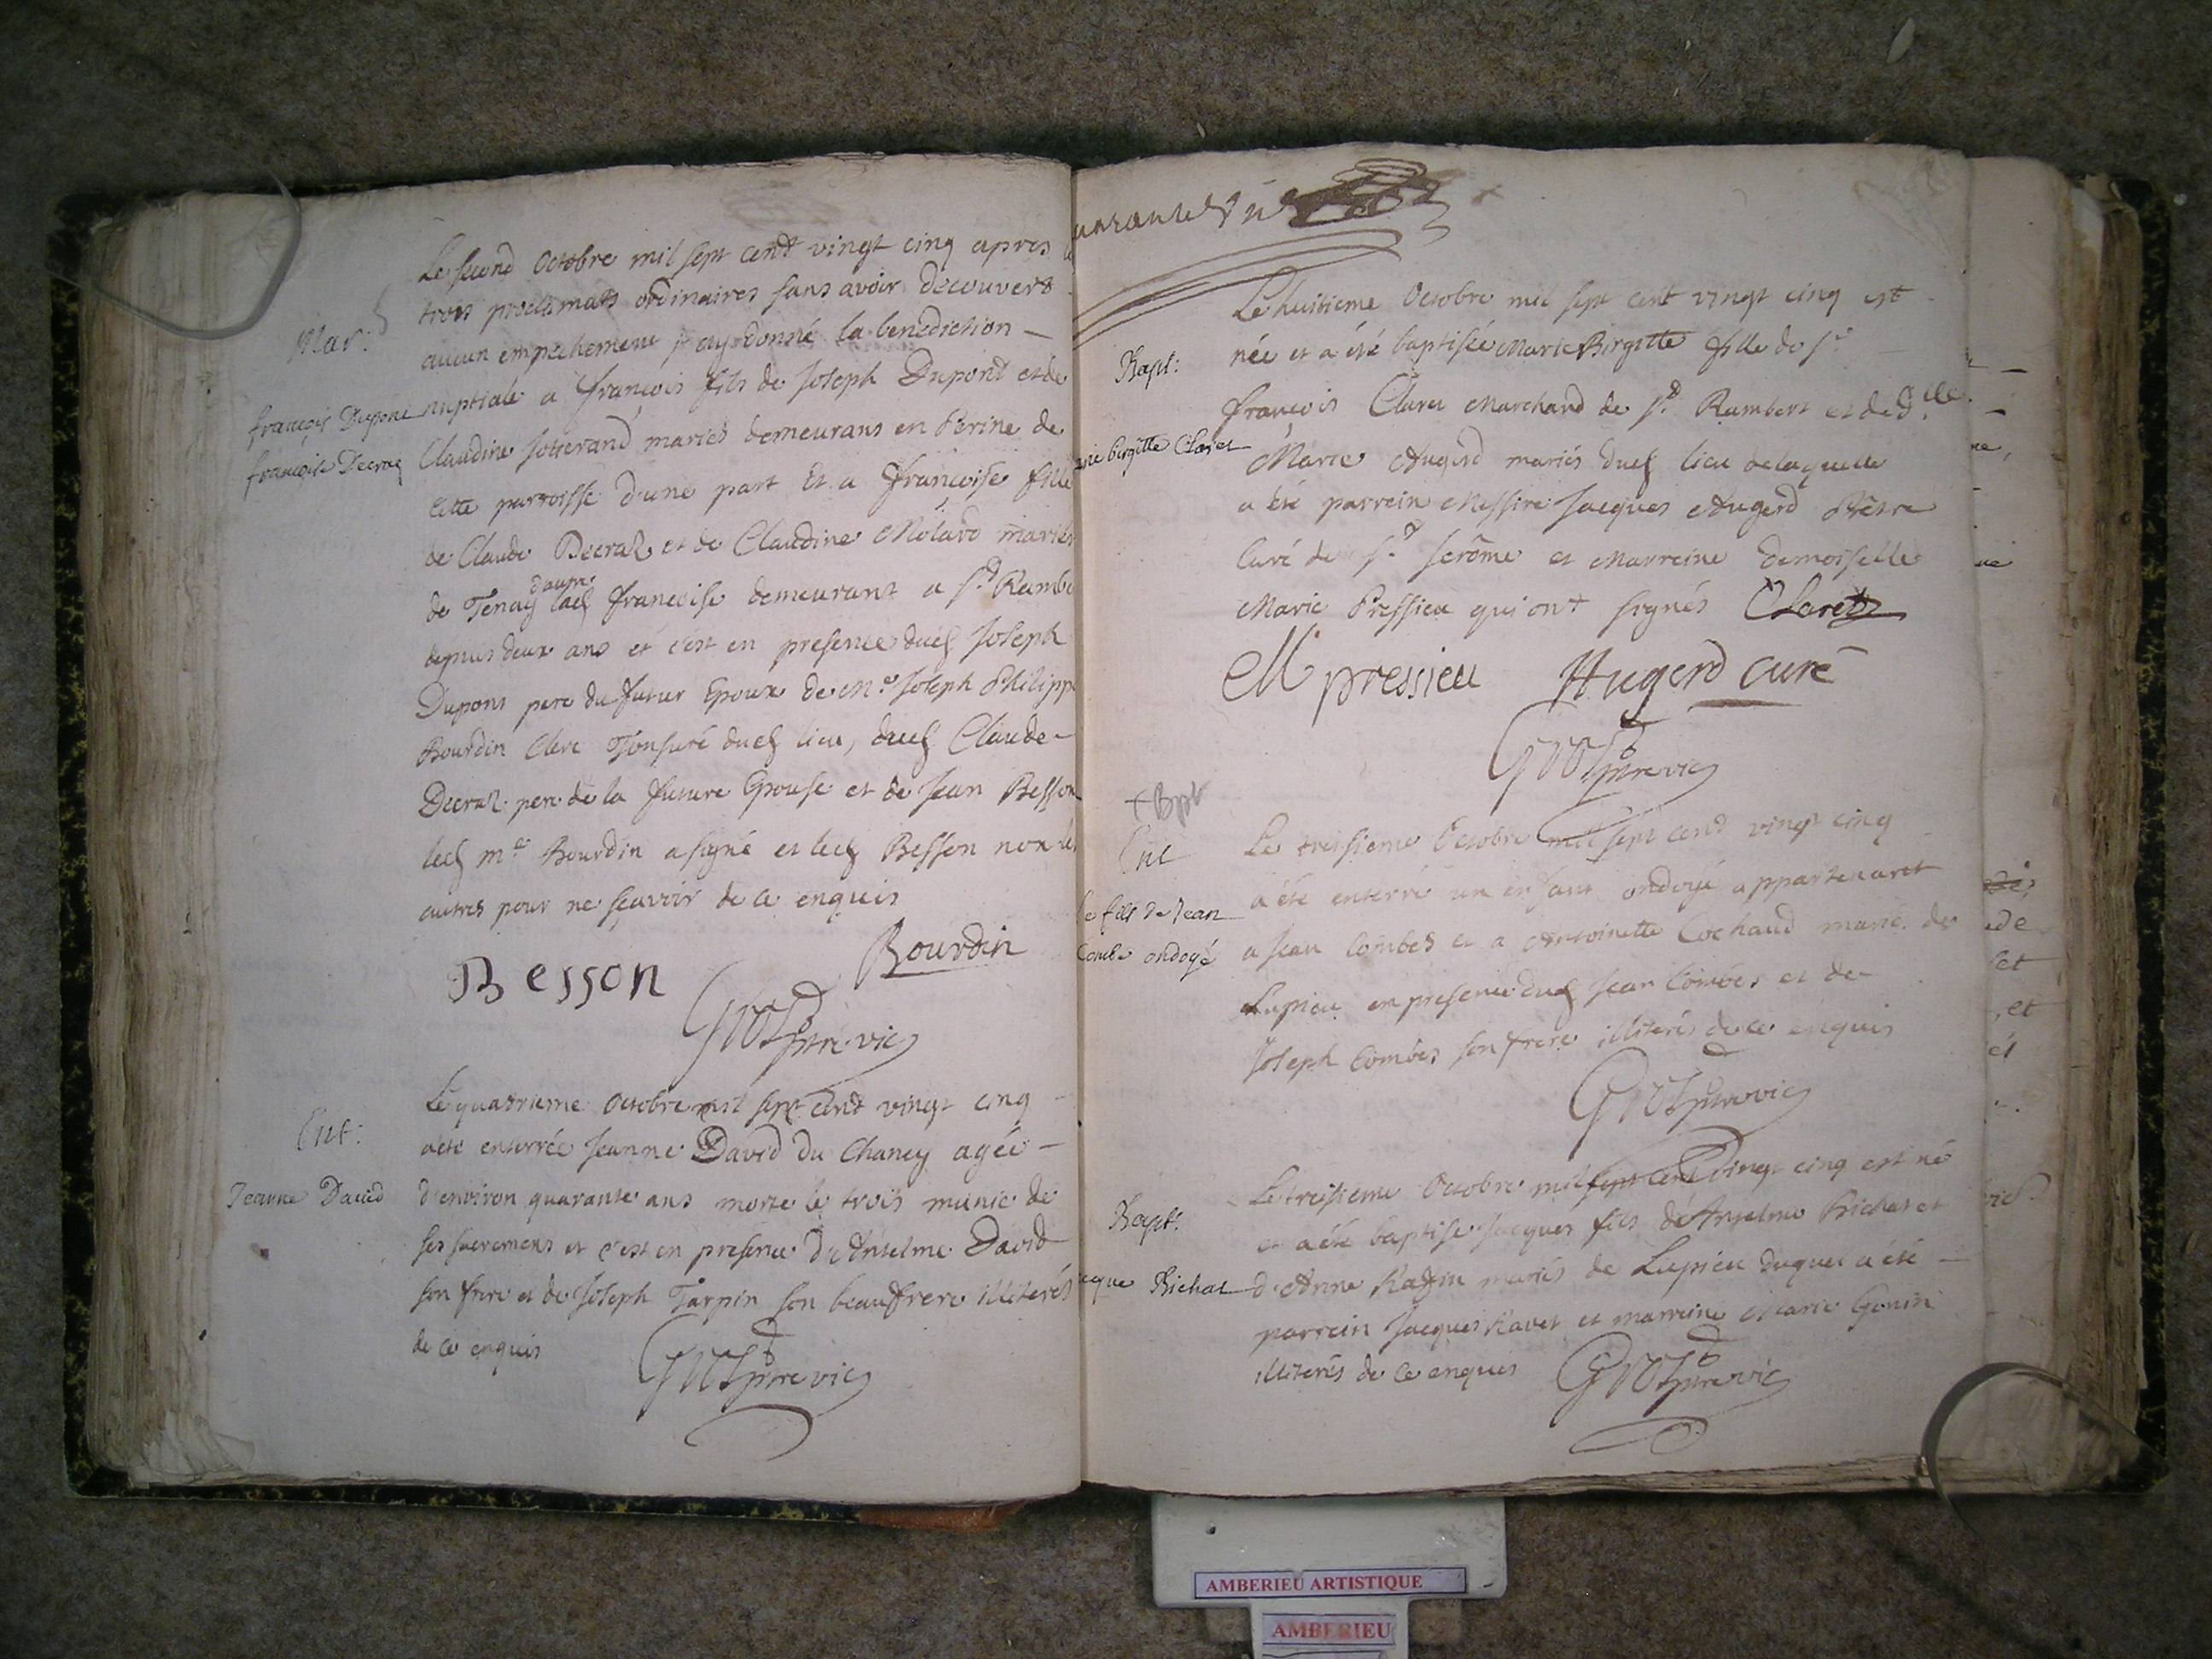 Mar:
françois Dupont
françoise Decraz
Le second Octobre mil sept cent vingt cinq apres
trois proclamats ordinaires sans avoir decouvert
aucun empechement j'ay donné la benediction
nuptiale a françois fils de Joseph Dupont et de
Claudine Josserand mariés demeurans en Perine de
cette parroisse d'une part Et a françoise fille
de Claude Decraz et de Claudine Molard mariés
d'autre
de Tenay lad françoise demeurant a st Rambe
depuis deux ans et c'est en presence dud Joseph
Dupont pere du futur Epoux de me Joseph Philippe
Bourdin Clerc Tonsuré dud lieu, dud Claude
Decraz pere de la future Epouse et de Jean Besson
led me Bourdin a signé et led Besson non les
autres pour ne sçavoir de ce enquis
Besson Bourdin
Grost ptre vic
Ent:
Jeanne David
Le quatrieme Octobre mil sept cent vingt cinq
a été enterrée Jeanne David du Chaney agée
d'environ quarante ans morte le trois munie de
ses sacremens et c'est en presence d'Anselme David
son frere et de Joseph Tarpin son beaufrere illiterés
de ce enquis
Grost ptre vic
uarante
Bapt:
rie Birgitte Claret
Le huitieme Octobre mil sept cent vingt cinq est
née et a été baptisée Marie Birgitte fille de sr
françois Claret Marchand de st Rambert et de Dlle
Marie Augerd mariés dud lieu de laquelle
a été parrein Messire Jacques Augerd Prêtre
Curé de st Jerôme et Marreine demoiselle
Marie Pressieu qui ont signés Claret
M pressieu Augerd curé
Grost ptre vic
+ Bpt
Ent
le fils de Jean
Combe ondoyé
Le treisieme Octobre mil sept cent vingt cinq
a été enterré un enfant ondoyé appartenant
a Jean Combes et a Antoinette Cochaud marié de
Lupieu en presence dud Jean Combes et de
Joseph Combes son frere illiterés de ce enquis
Grost ptre vic
Bapt:
acque Richat
Le treisieme Octobre mil sept cent vingt cinq est né
et a été baptisé Jacques fils d'Anselme Richat et
d'Anne mariés de Lupieu duquel a été
parrein Jacques Ravet et marreine Marie Gonin
illiterés de ce enquis
Grost ptre vic
AMBERIEU ARTISTIQUE
AMBERIEU